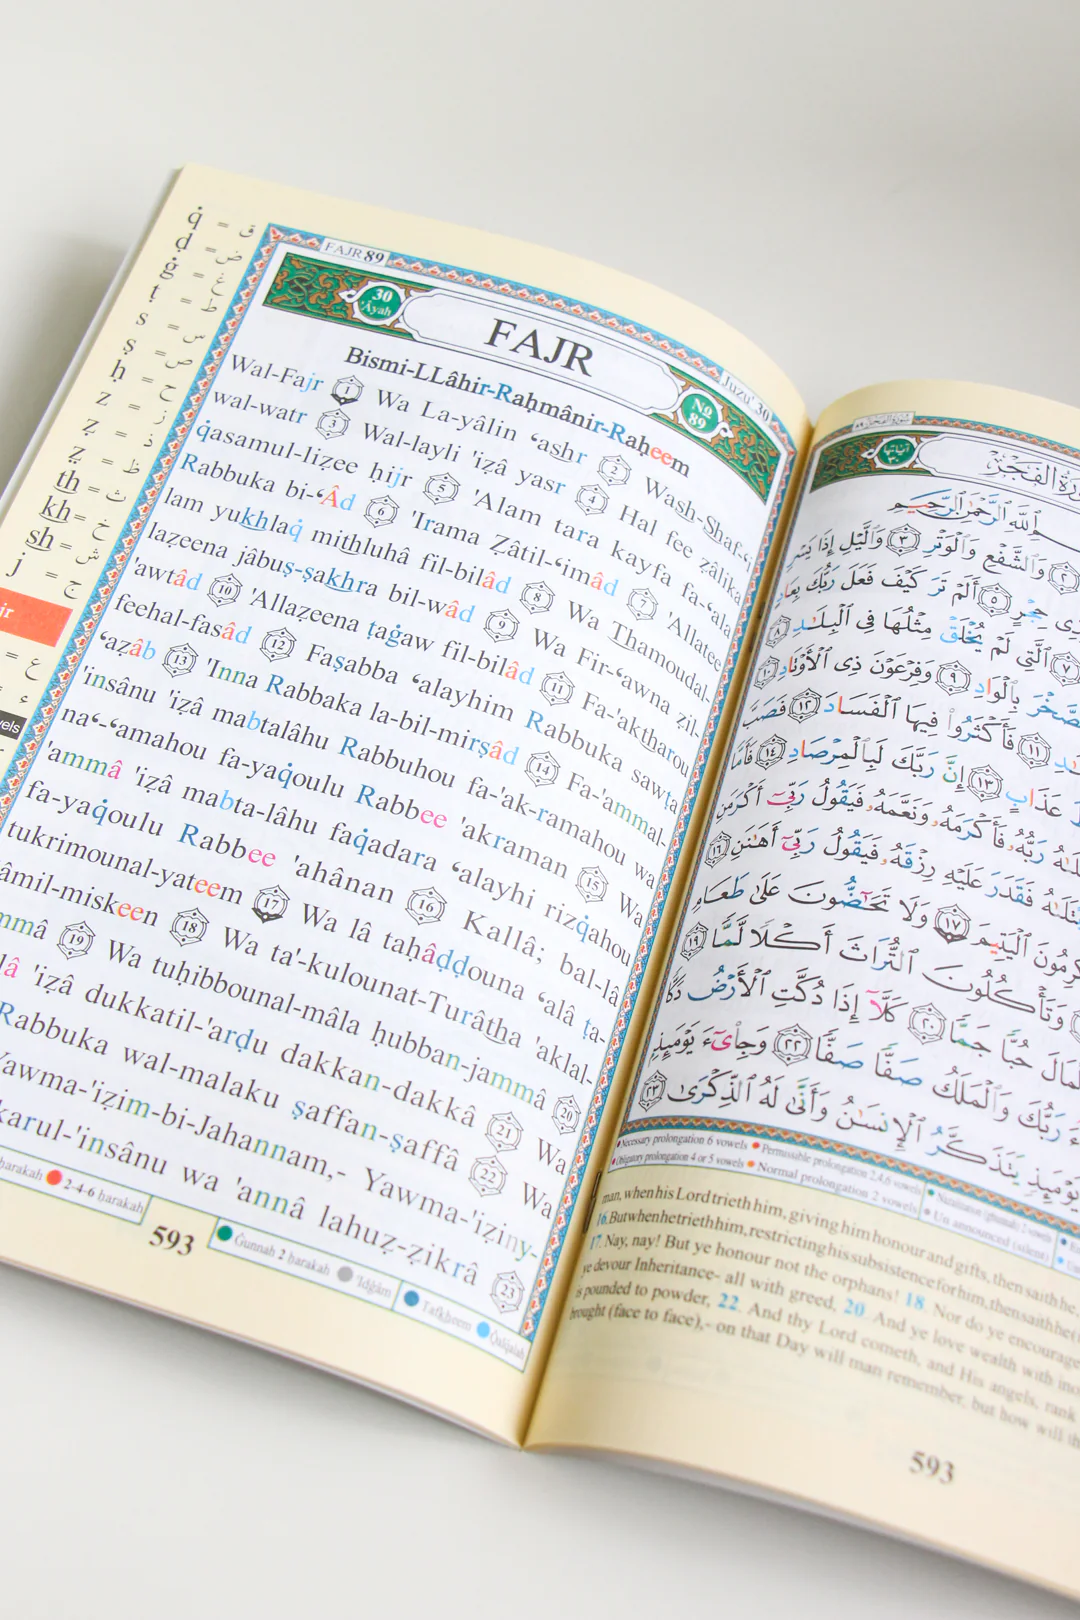 q̇ = ق
ḍ = ض
ġ = غ
ṭ = ط
s = س
ṣ = ص
ḥ = ح
z = ز
ẓ = ذ
ẓ = ظ
th = ث
kh = خ
sh = ش
j = ج
= ع
FAJR 89
30 'Âyah
FAJR
Juzu' 30
№ 89
Bismi-LLâhir-Raḥmânir-Raḥeem
Wal-Fajr 1 Wa La-yâlin ‘ashr 2 Wash-Shaf-‘i
wal-watr 3 Wal-layli 'iẓâ yasr 4 Hal fee ẓâlika
q̇asamul-liẓee ḥijr 5 'Alam tara kayfa fa-‘ala
Rabbuka bi-‘Âd 6 'Irama Ẓâtil-‘imâd 7 'Allatee
lam yukhlaq̇ mithluhâ fil-bilâd 8 Wa Thamoudal-
laẓeena jâbuṣ-ṣakhra bil-wâd 9 Wa Fir-‘awna ẓil-
'awtâd 10 'Allaẓeena ṭaġaw fil-bilâd 11 Fa-'aktharou
feehal-fasâd 12 Faṣabba ‘alayhim Rabbuka sawṭa
‘aẓâb 13 'Inna Rabbaka la-bil-mirṣâd 14 Fa-'ammal-
'insânu 'iẓâ mabtalâhu Rabbuhou fa-'ak-ramahou wa
na‘-‘amahou fa-yaq̇oulu Rabbee 'akraman 15 Wa
'ammâ 'iẓâ mabta-lâhu faq̇adara ‘alayhi rizq̇ahou
fa-yaq̇oulu Rabbee 'ahânan 16 Kallâ; bal-lâ
tukrimounal-yateem 17 Wa lâ taḥâḍḍouna ‘alâ ṭa-
âmil-miskeen 18 Wa ta'-kulounat-Turâtha 'aklal-
mmâ 19 Wa tuḥibbounal-mâla ḥubban-jammâ 20
lâ 'iẓâ dukkatil-'arḍu dakkan-dakkâ 21 Wa
Rabbuka wal-malaku ṣaffan-ṣaffâ 22 Wa
Yawma-'iẓim-bi-Jahannam,- Yawma-'iẓiny-
karul-'insânu wa 'annâ lahuẓ-ẓikrâ 23
ḥarakah 2-4-6 ḥarakah
Ġunnah 2 ḥarakah 'Idġâm Tafkheem Q̇alq̇alah
593
ٱللَّهِ ٱلرَّحْمَٰنِ ٱلرَّحِيمِ
٢ وَٱلشَّفْعِ وَٱلْوَتْرِ ٣ وَٱلَّيْلِ إِذَا يَسْرِ
حِجْرٍ ٥ أَلَمْ تَرَ كَيْفَ فَعَلَ رَبُّكَ بِعَادٍ
٧ ٱلَّتِى لَمْ يُخْلَقْ مِثْلُهَا فِى ٱلْبِلَٰدِ ٨
ٱلصَّخْرَ بِٱلْوَادِ ٩ وَفِرْعَوْنَ ذِى ٱلْأَوْتَادِ ١٠
١١ فَأَكْثَرُوا۟ فِيهَا ٱلْفَسَادَ ١٢ فَصَبَّ
عَذَابٍ ١٣ إِنَّ رَبَّكَ لَبِٱلْمِرْصَادِ ١٤ فَأَمَّا
رَبُّهُۥ فَأَكْرَمَهُۥ وَنَعَّمَهُۥ فَيَقُولُ رَبِّىٓ أَكْرَمَنِ
فَقَدَرَ عَلَيْهِ رِزْقَهُۥ فَيَقُولُ رَبِّىٓ أَهَٰنَنِ ١٦
ٱلْيَتِيمَ ١٧ وَلَا تَحَٰٓضُّونَ عَلَىٰ طَعَامِ
وَتَأْكُلُونَ ٱلتُّرَاثَ أَكْلًا لَّمًّا ١٩
حُبًّا جَمًّا ٢٠ كَلَّآ إِذَا دُكَّتِ ٱلْأَرْضُ دَكًّا
رَبُّكَ وَٱلْمَلَكُ صَفًّا صَفًّا ٢٢ وَجِا۟ىٓءَ يَوْمَئِذٍۭ
يَوْمَئِذٍ يَتَذَكَّرُ ٱلْإِنسَٰنُ وَأَنَّىٰ لَهُ ٱلذِّكْرَىٰ ٢٣
Necessary prolongation 6 vowels Permissible prolongation 2,4,6 vowels
Obligatory prolongation 4 or 5 vowels Normal prolongation 2 vowels
Un announced (silent)
man, when his Lord trieth him, giving him honour and gifts, then saith he,
16. But when he trieth him, restricting his subsistence for him, then saith he
17. Nay, nay! But ye honour not the orphans! 18. Nor do ye encourage
ye devour Inheritance- all with greed, 20. And ye love wealth with
is pounded to powder, 22. And thy Lord cometh, and His angels, rank
brought (face to face),- on that Day will man remember, but how will
593